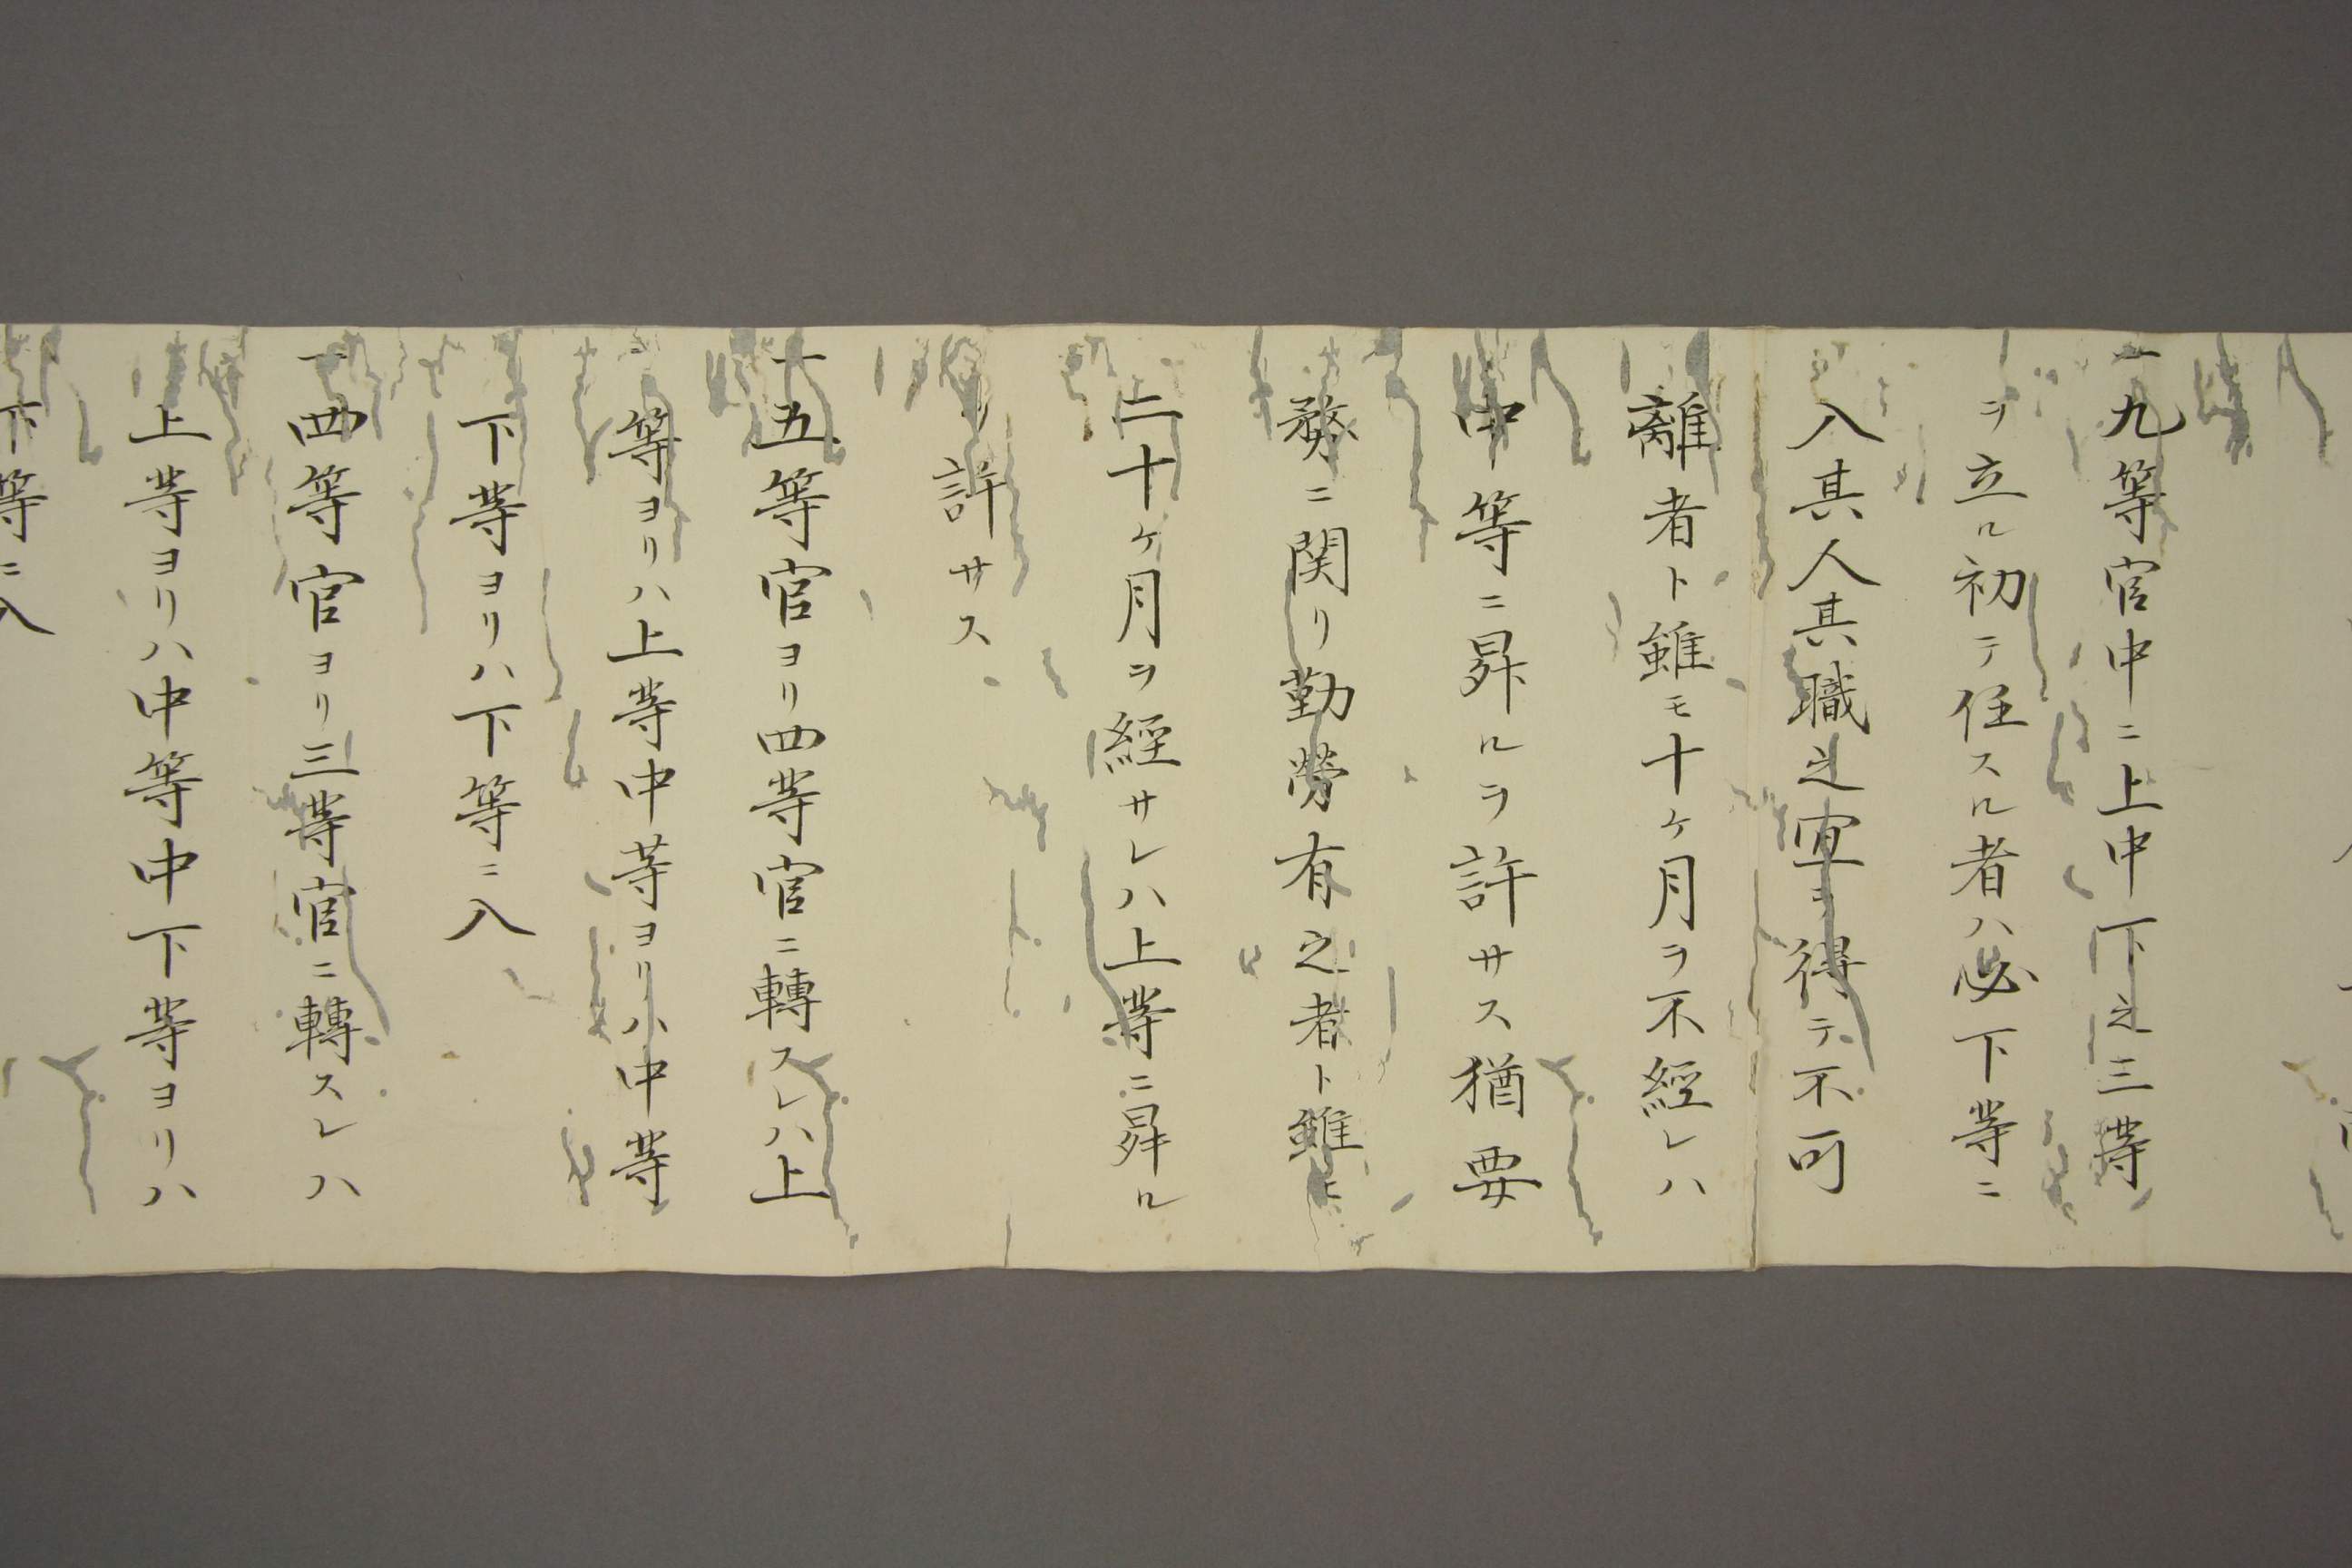 一九等官中ニ上中下之三等
ヲ立ル初テ任スル者ハ必下等ニ
入其人其職之宜ヲ得テ不可
離者ト雖モ十ケ月ヲ不經レハ
中等ニ昇ルヲ許サス猶要
務ニ関リ勤勞有之者ト雖モ
二十ケ月ヲ經サレハ上等ニ昇ル
ヲ許サス
一五等官ヨリ四等官ニ轉スレハ上
等ヨリハ上等中等ヨリハ中等
下等ヨリハ下等ニ入
一四等官ヨリ三等官ニ轉スレハ
上等ヨリハ中等中下等ヨリハ
下等ニ入